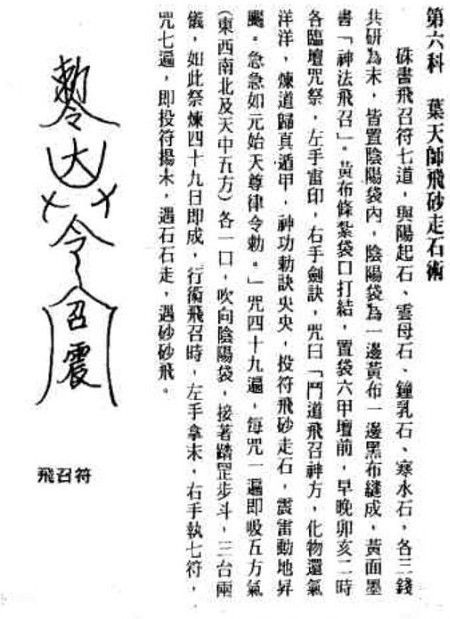 第六科　葉天師飛砂走石術
硃書飛召符七道，與陽起石、雲母石、鐘乳石、寒水石，各三錢
共研為末，皆置陰陽袋內，陰陽袋為一邊黃布一邊黑布縫成，黃面墨
書「神法飛召」。黃布條紮袋口打結，置袋六甲壇前，早晚卯亥二時
各臨壇咒祭，左手雷印，右手劍訣，咒曰「鬥道飛召神方，化物還氣
洋洋，煉道歸真遁甲，神功勅訣央央，投符飛砂走石，震雷動地昇
颺。急急如元始天尊律令勅。」咒四十九遍，每咒一遍即吸五方氣
（東西南北及天中五方）各一口，吹向陰陽袋，接著踏罡步斗，三台兩
儀，如此祭煉四十九日即成，行術飛召時，左手拿末，右手執七符，
咒七遍，即投符揚末，遇石石走，遇砂砂飛。
令召震
飛召符